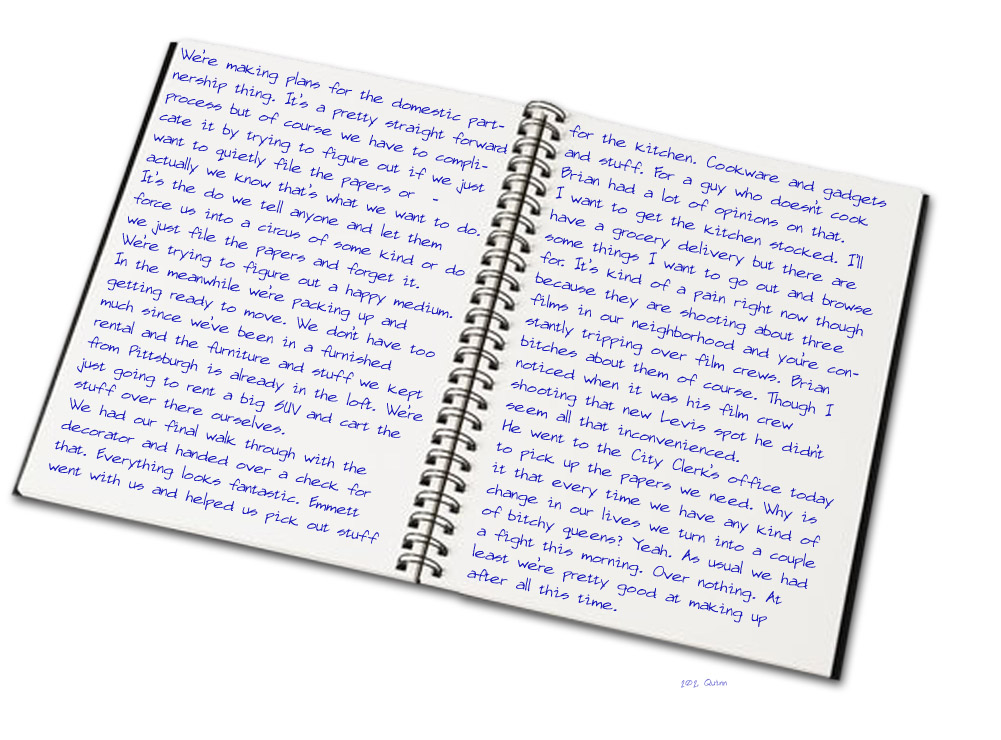 We're making plans for the domestic part-
nership thing. It's a pretty straight forward
process but of course we have to compli-
cate it by trying to figure out if we just
want to quietly file the papers or -
actually we know that's what we want to do.
It's the do we tell anyone and let them
force us into a circus of some kind or do
we just file the papers and forget it.
We're trying to figure out a happy medium.
In the meanwhile we're packing up and
getting ready to move. We don't have too
much since we've been in a furnished
rental and the furniture and stuff we kept
from Pittsburgh is already in the loft. We're
just going to rent a big SUV and cart the
stuff over there ourselves.
We had our final walk through with the
decorator and handed over a check for
that. Everything looks fantastic. Emmett
went with us and helped us pick out stuff
for the kitchen. Cookware and gadgets
and stuff. For a guy who doesn't cook
Brian had a lot of opinions on that.
I want to get the kitchen stocked. I'll
have a grocery delivery but there are
some things I want to go out and browse
for. It's kind of a pain right now though
because they are shooting about three
films in our neighborhood and you're con-
stantly tripping over film crews. Brian
bitches about them of course. Though I
noticed when it was his film crew
shooting that new Levis spot he didn't
seem all that inconvenienced.
He went to the City Clerk's office today
to pick up the papers we need. Why is
it that every time we have any kind of
change in our lives we turn into a couple
of bitchy queens? Yeah. As usual we had
a fight this morning. Over nothing. At
least we're pretty good at making up
after all this time.
Quinn